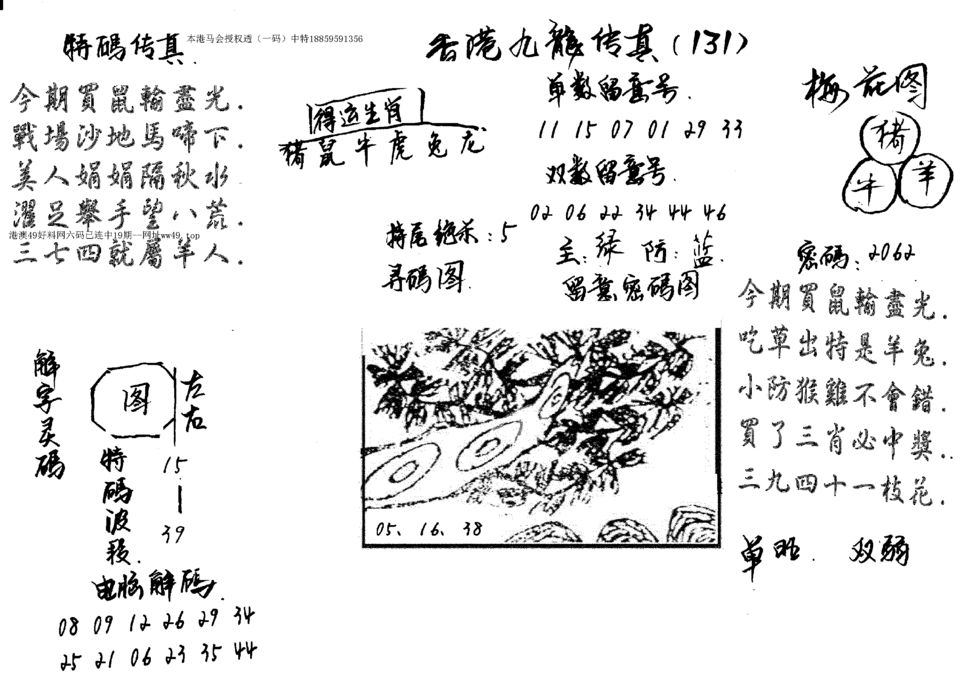 特碼传真.
本港马会授权透（一码）中特18859591356
香港九龍传真(131)
今期買鼠輸盡光.
戰場沙地馬啼下.
美人娟娟隔秋水
濯足舉手望八荒.
港澳49好料网六码已连中19期一网址ww49.top
三七四就屬羊人.
得运生肖
猪鼠牛虎兔龙
单数留意号.
11 15 07 01 29 33
双数留意号.
02 06 22 34 44 46
特尾绝杀:5
主:绿 防:蓝.
寻码图.
留意密碼图
梅花图
猪
牛
羊
密碼:2062
今期買鼠輸盡光.
吃草出特是羊兔.
小防猴雞不會錯.
買了三肖必中獎..
三九四十一枝花.
单旺. 双弱
解字灵碼
图
左右
特碼波段.
15
39
05、16、38
电脑解碼.
08 09 12 26 29 34
25 21 06 23 35 44